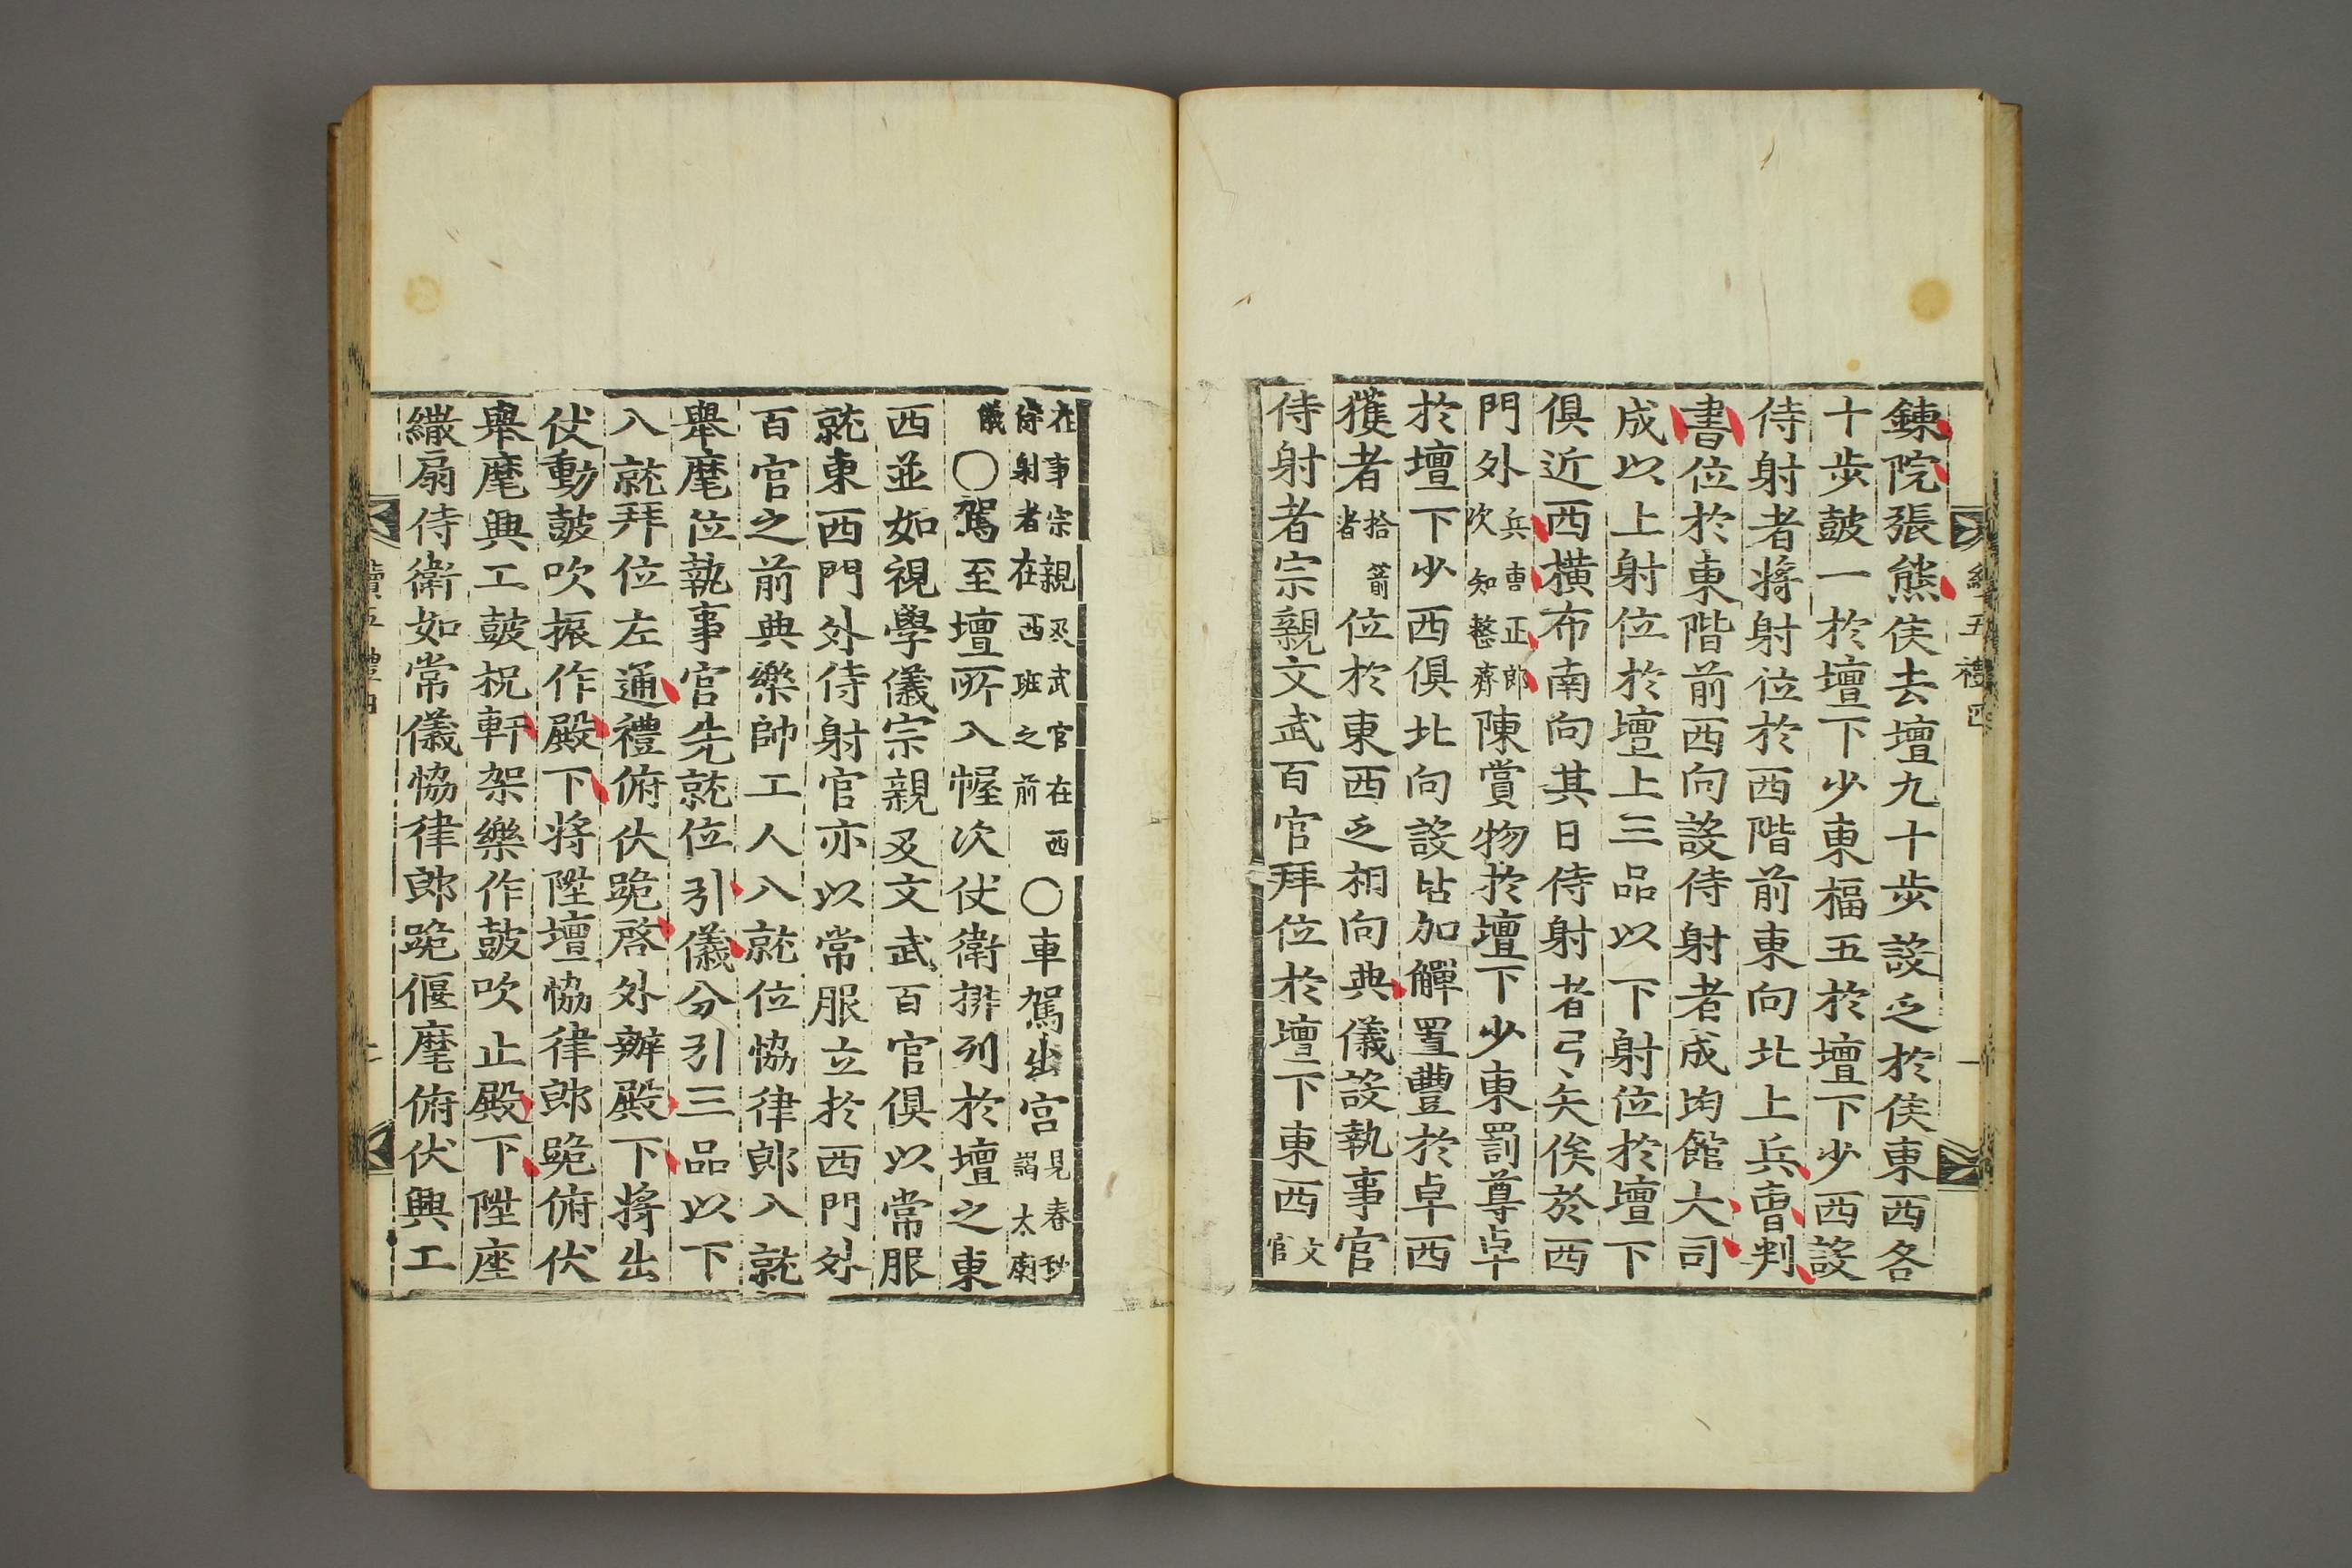 鍊院張熊侯去壇九十步設乏於侯東西各
十步鼓一於壇下少東福五於壇下少西設
侍射者將射位於西階前東向北上兵曹判
書位於東階前西向設侍射者成均館大司
成以上射位於壇上三品以下射位於壇下
俱近西橫布南向其日侍射者弓矢俟於西
門外兵曹正郎吹知整齊陳賞物於壇下少東罰尊卓
於壇下少西俱北向設坫加觶置豐於卓西
獲者拾箭者位於東西乏相向典儀設執事官
侍射者宗親文武百官拜位於壇下東西文官
在事宗親及武官在西侍射者在西班之前○車駕出宮見春秋謁太廟
儀○駕至壇所入幄次仗衛排列於壇之東
西並如視學儀宗親及文武百官俱以常服
就東西門外侍射官亦以常服立於西門外
百官之前典樂帥工人入就位恊律郎入就
舉麾位執事官先就位引儀分引三品以下
入就拜位左通禮俯伏跪啓外辦殿下將出
仗動鼓吹振作殿下將陞壇恊律郎跪俯伏
舉麾興工鼓柷軒架樂作鼓吹止殿下陞座
繖扇侍衛如常儀恊律郎跪偃麾俯伏興工
續五禮四